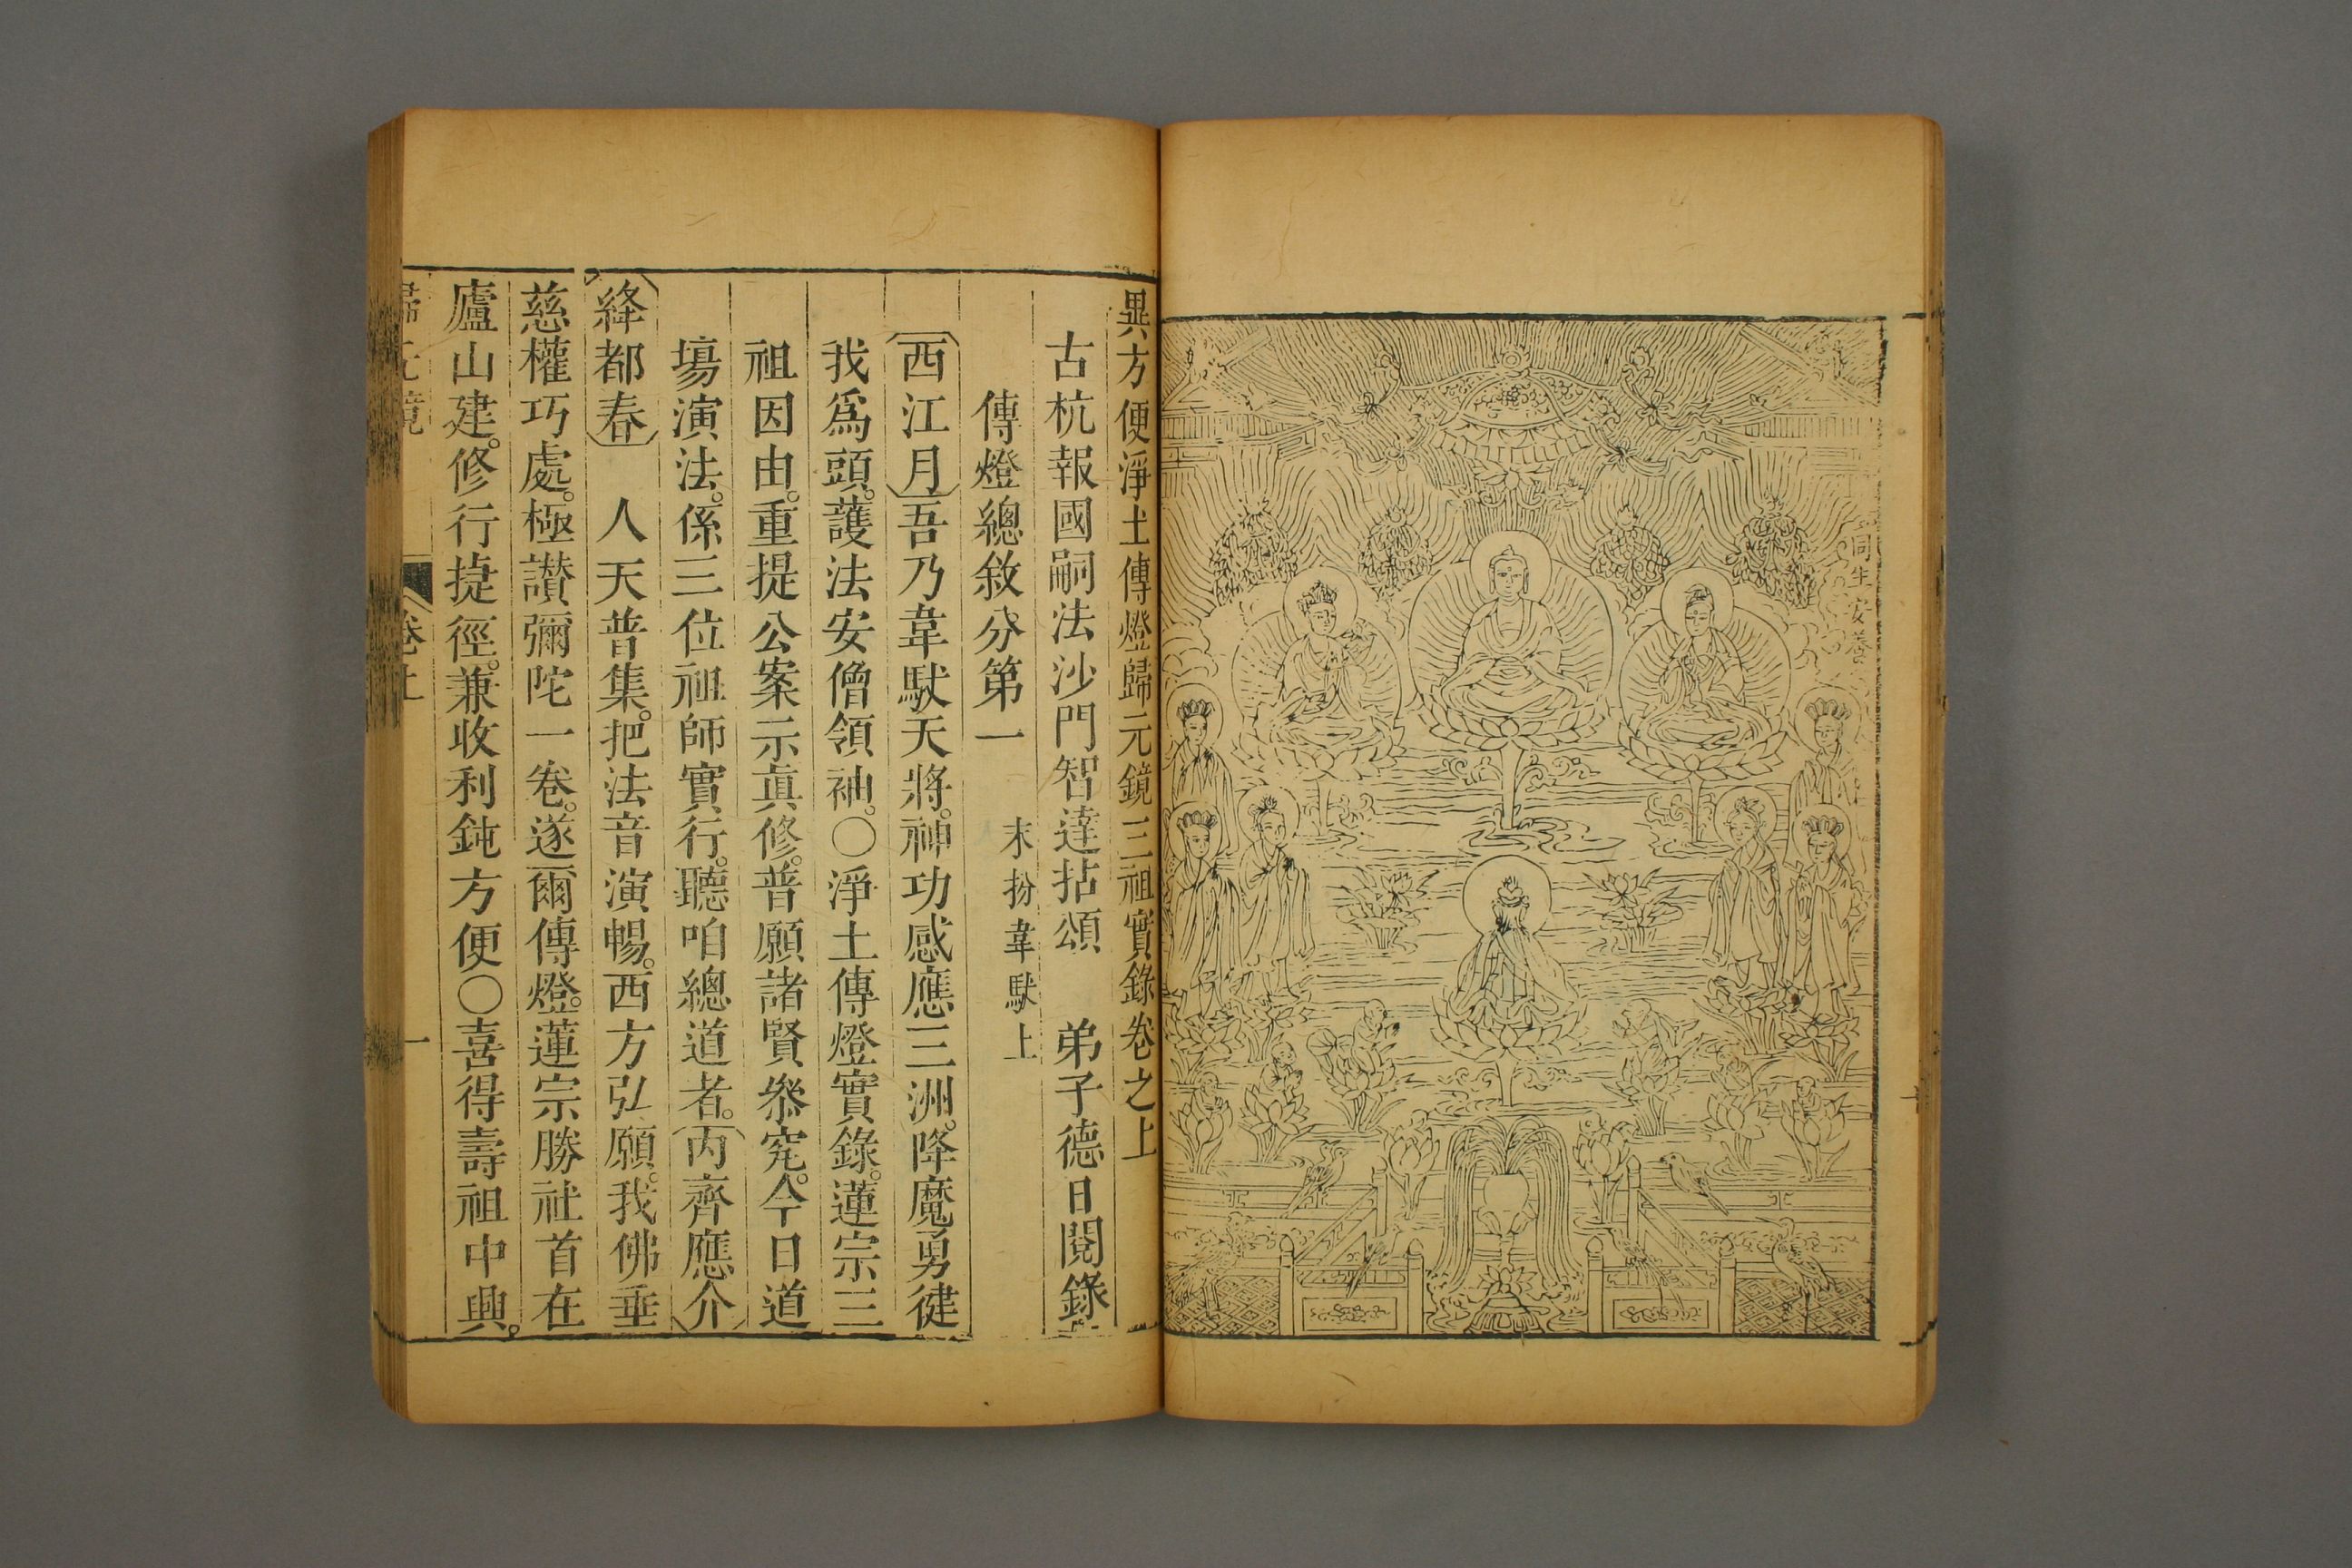 同生安養
異方便淨土傳燈歸元鏡三祖實錄卷之上
古杭報國嗣法沙門智達拈頌　弟子德日閱錄
傳燈總敘分第一　末扮韋馱上
西江月吾乃韋馱天將。神功感應三洲。降魔勇健
我爲頭。護法安僧領袖。〇淨土傳燈實錄。蓮宗三
祖因由。重提公案示真修。普願諸賢叅究。今日道
場演法。係三位祖師實行。聽咱總道者。丙齊應介
絳都春　人天普集。把法音演暢。西方弘願。我佛垂
慈權巧處。極讃彌陀一卷。遂爾傳燈。蓮宗勝社首在
廬山建。修行捷徑。兼收利鈍方便〇喜得壽祖中興。
歸元鏡　卷上　一